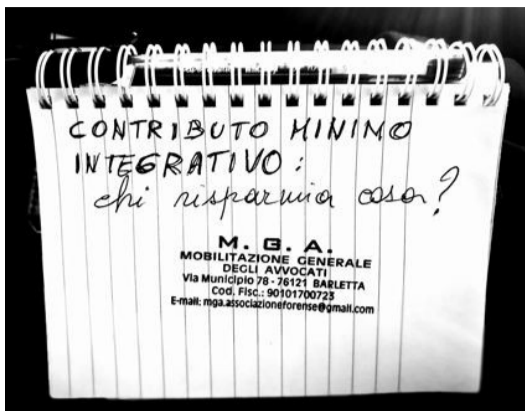 CONTRIBUTO MINIMO
INTEGRATIVO:
chi risparmia cosa?
M. G. A.
MOBILITAZIONE GENERALE
DEGLI AVVOCATI
Via Municipio 78 - 76121 BARLETTA
Cod. Fisc.: 90101700723
E-mail: mga.associazioneforense@gmail.com